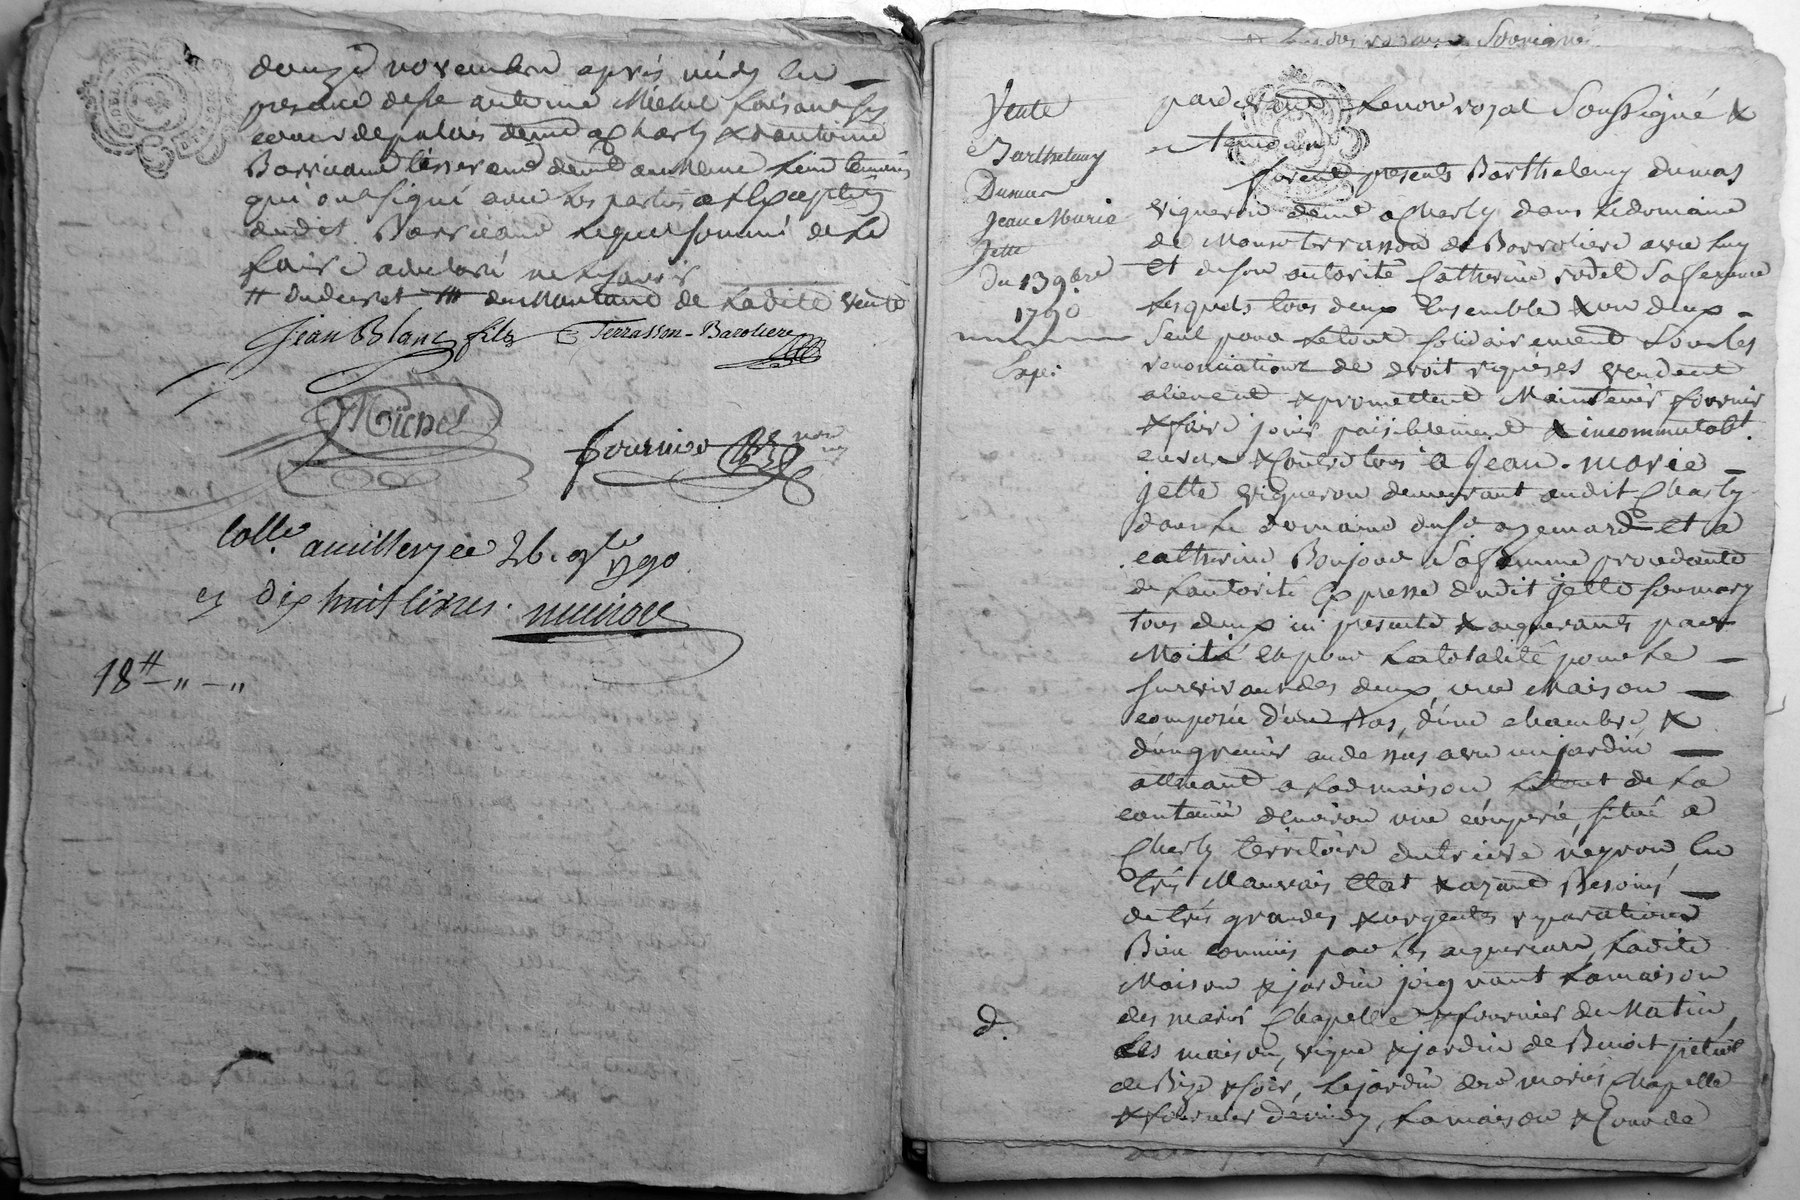 douze novembre après midy en
presence de Sr antoine Michel faisant les
cours de palais demt a Charly & d'antoine
Barricand tisserand demt au Meme Lieu temoins
qui ont signé avec les parties a l'exception
dudit Barricand lequel sommé de le
faire a declaré ne savoir
du montant de Ladite vente
Jean Blanc fils Terrasson-Barolière
Michel
fournier
Collé a millery ce 26. 9bre 1790
dix huit livres.
18
Vente
Barthelemy
Dumas
Jean Marie
Jette
du 13 9bre
1790
Expé
pardevant Le nore royal Soussigné &
temoins
furent presents Barthelemy dumas
vigneron demt a Charly dans Le domaine
de Monsr terrasson de Barroliere avec luy
et de son autorité Catherine rodet Sa femme
Lesquels tous deux Ensemble & un deux
Seul pour Le tout solidairement Sous les
renonciations de droit requises vendent
alienent & promettent Maintenir fournir
& faire jouir paisiblement & incommutablt
envers & contre tous a Jean-marie
jette vigneron demeurant audit Charly
dans Le domaine du Sr aymard et a
catherine Bonjour Sa femme procedante
de L'autorité Expresse dudit jette son mary
tous deux ici presents & acquerants par
Moitié et pour La totalité pour Le
survivant des deux, une Maison
composée d'un Bas, d'une chambre &
d'un grenier au dessus avec un jardin
attenant a Lad maison Le tout de La
contenüe denviron une couperée, situé a
Charly territoire du trieve negron, en
très Mauvais Etat & ayant Besoins
de très grandes & urgentes reparations
Bien connuës par Les acquereurs, Ladite
Maison & jardin joignant La maison
des mariés Chapelle & fournier du Matin,
d.
Les maison, vigne & jardin de Benoit
de Bize & soir, Le jardin des mariés Chapelle
& fournier de midy, La maison & Cour de